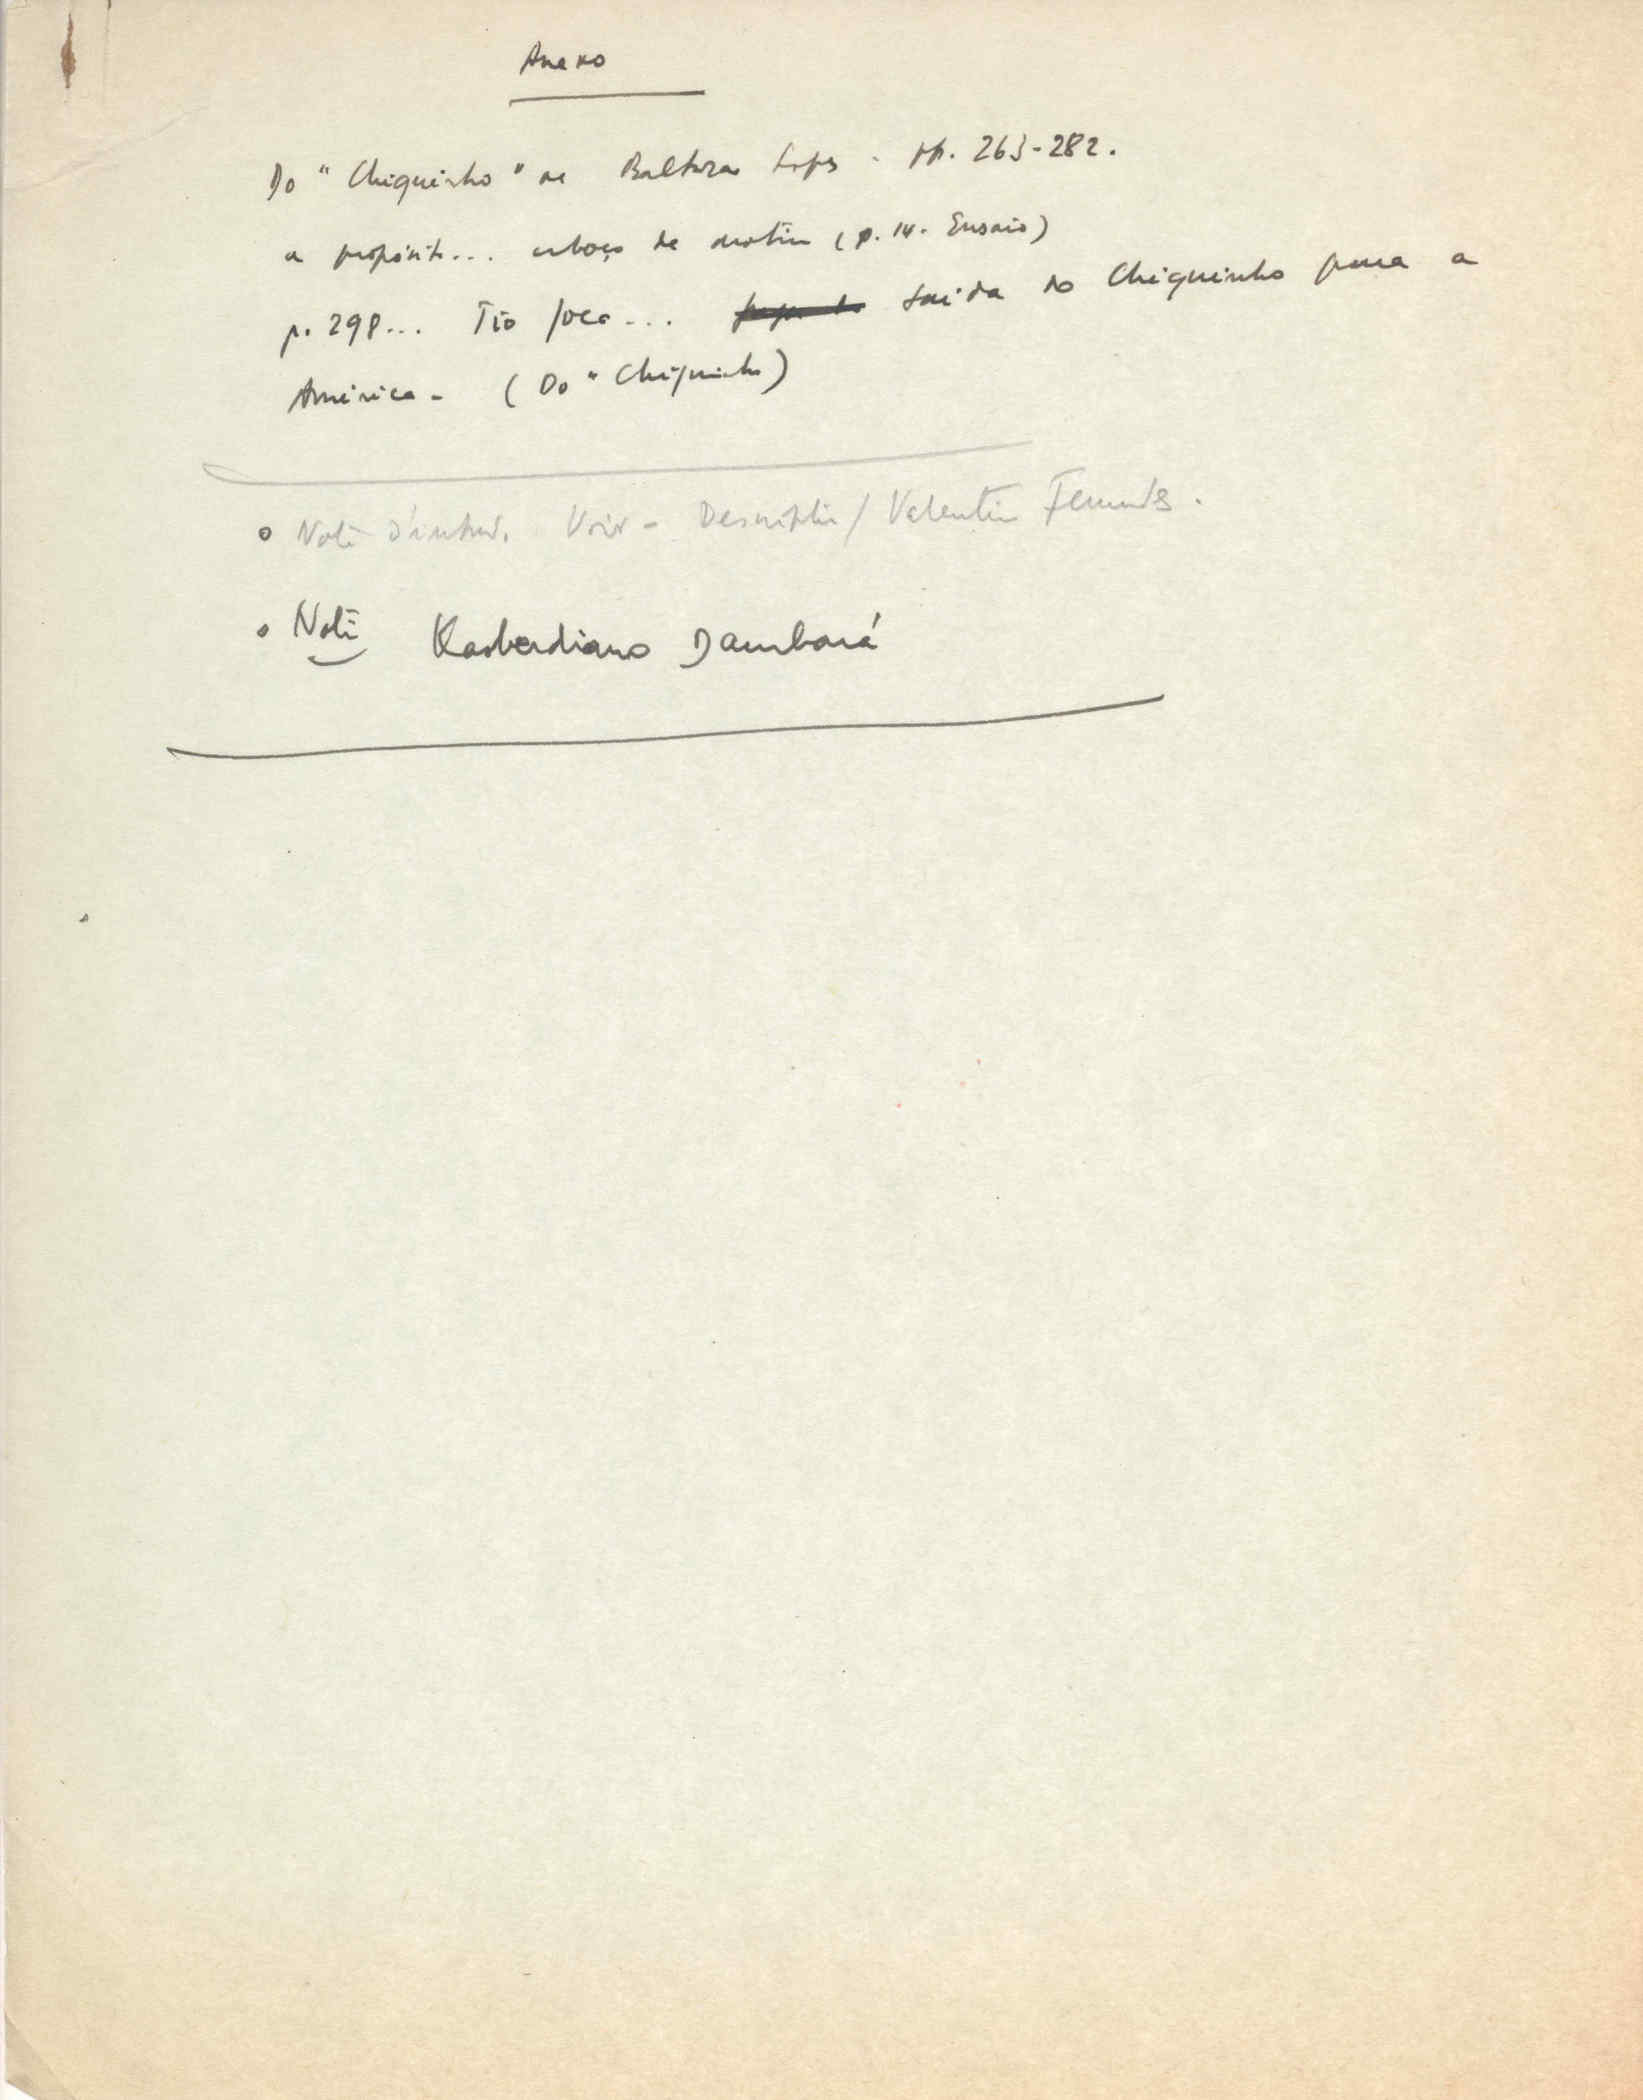 Anexo
Do "Chiquinho" de Baltazar Lopes - pp. 263-282.
a propósito... esboço de motim (p. 14. Ensaio)
p. 298... Tio Joca... saida do Chiquinho para a
América - (Do "Chiquinho)
Note d'introd. Voir - Description / Valentim Fernandes.
Note Kaoberdiano Dambará